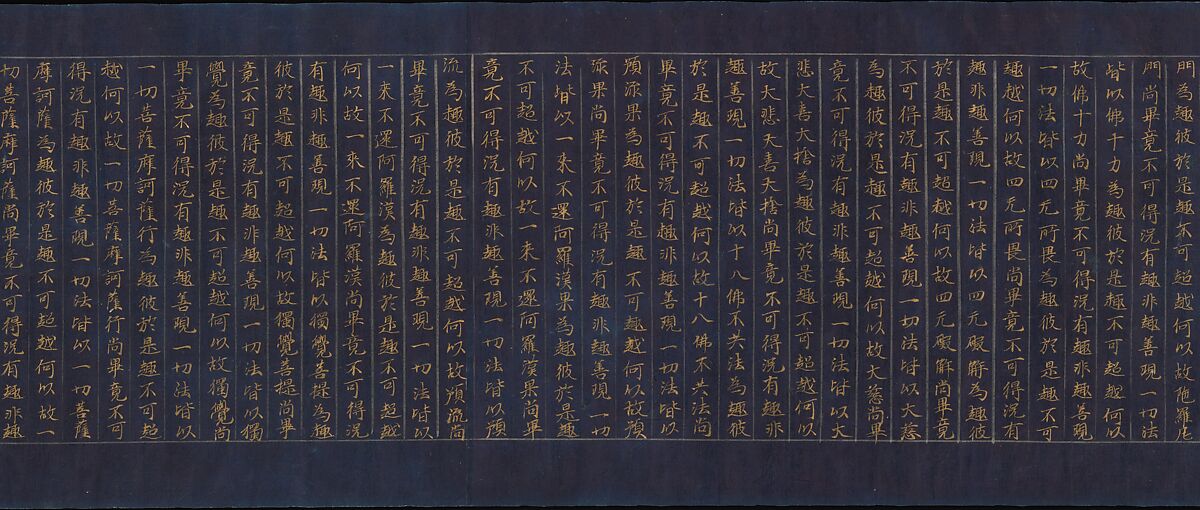 門為趣彼於是趣不可超越何以故陀羅尼
門尚畢竟不可得況有趣非趣善現一切法
皆以佛十力為趣彼於是趣不可超越何以
故佛十力尚畢竟不可得況有趣非趣善現
一切法皆以四无所畏為趣彼於是趣不可
超越何以故四无所畏尚畢竟不可得況有
趣非趣善現一切法皆以四无礙解為趣彼
於是趣不可超越何以故四无礙解尚畢竟
不可得況有趣非趣善現一切法皆以大慈
為趣彼於是趣不可超越何以故大慈尚畢
竟不可得況有趣非趣善現一切法皆以大
悲大喜大捨為趣彼於是趣不可超越何以
故大悲大喜大捨尚畢竟不可得況有趣非
趣善現一切法皆以十八佛不共法為趣彼
於是趣不可超越何以故十八佛不共法尚
畢竟不可得況有趣非趣善現一切法皆以
預流果為趣彼於是趣不可超越何以故預
流果尚畢竟不可得況有趣非趣善現一切
法皆以一來不還阿羅漢果為趣彼於是趣
不可超越何以故一来不還阿羅漢果尚畢
竟不可得況有趣非趣善現一切法皆以預
流為趣彼於是趣不可超越何以故預流尚
畢竟不可得況有趣非趣善現一切法皆以
一來不還阿羅漢為趣彼於是趣不可超越
何以故一來不還阿羅漢尚畢竟不可得況
有趣非趣善現一切法皆以獨覺菩提為趣
彼於是趣不可超越何以故獨覺菩提尚畢
竟不可得況有趣非趣善現一切法皆以獨
覺為趣彼於是趣不可超越何以故獨覺尚
畢竟不可得況有趣非趣善現一切法皆以
一切菩薩摩訶薩行為趣彼於是趣不可超
越何以故一切菩薩摩訶薩行尚畢竟不可
得況有趣非趣善現一切法皆以一切菩薩
摩訶薩為趣彼於是趣不可超越何以故一
切菩薩摩訶薩尚畢竟不可得況有趣非趣